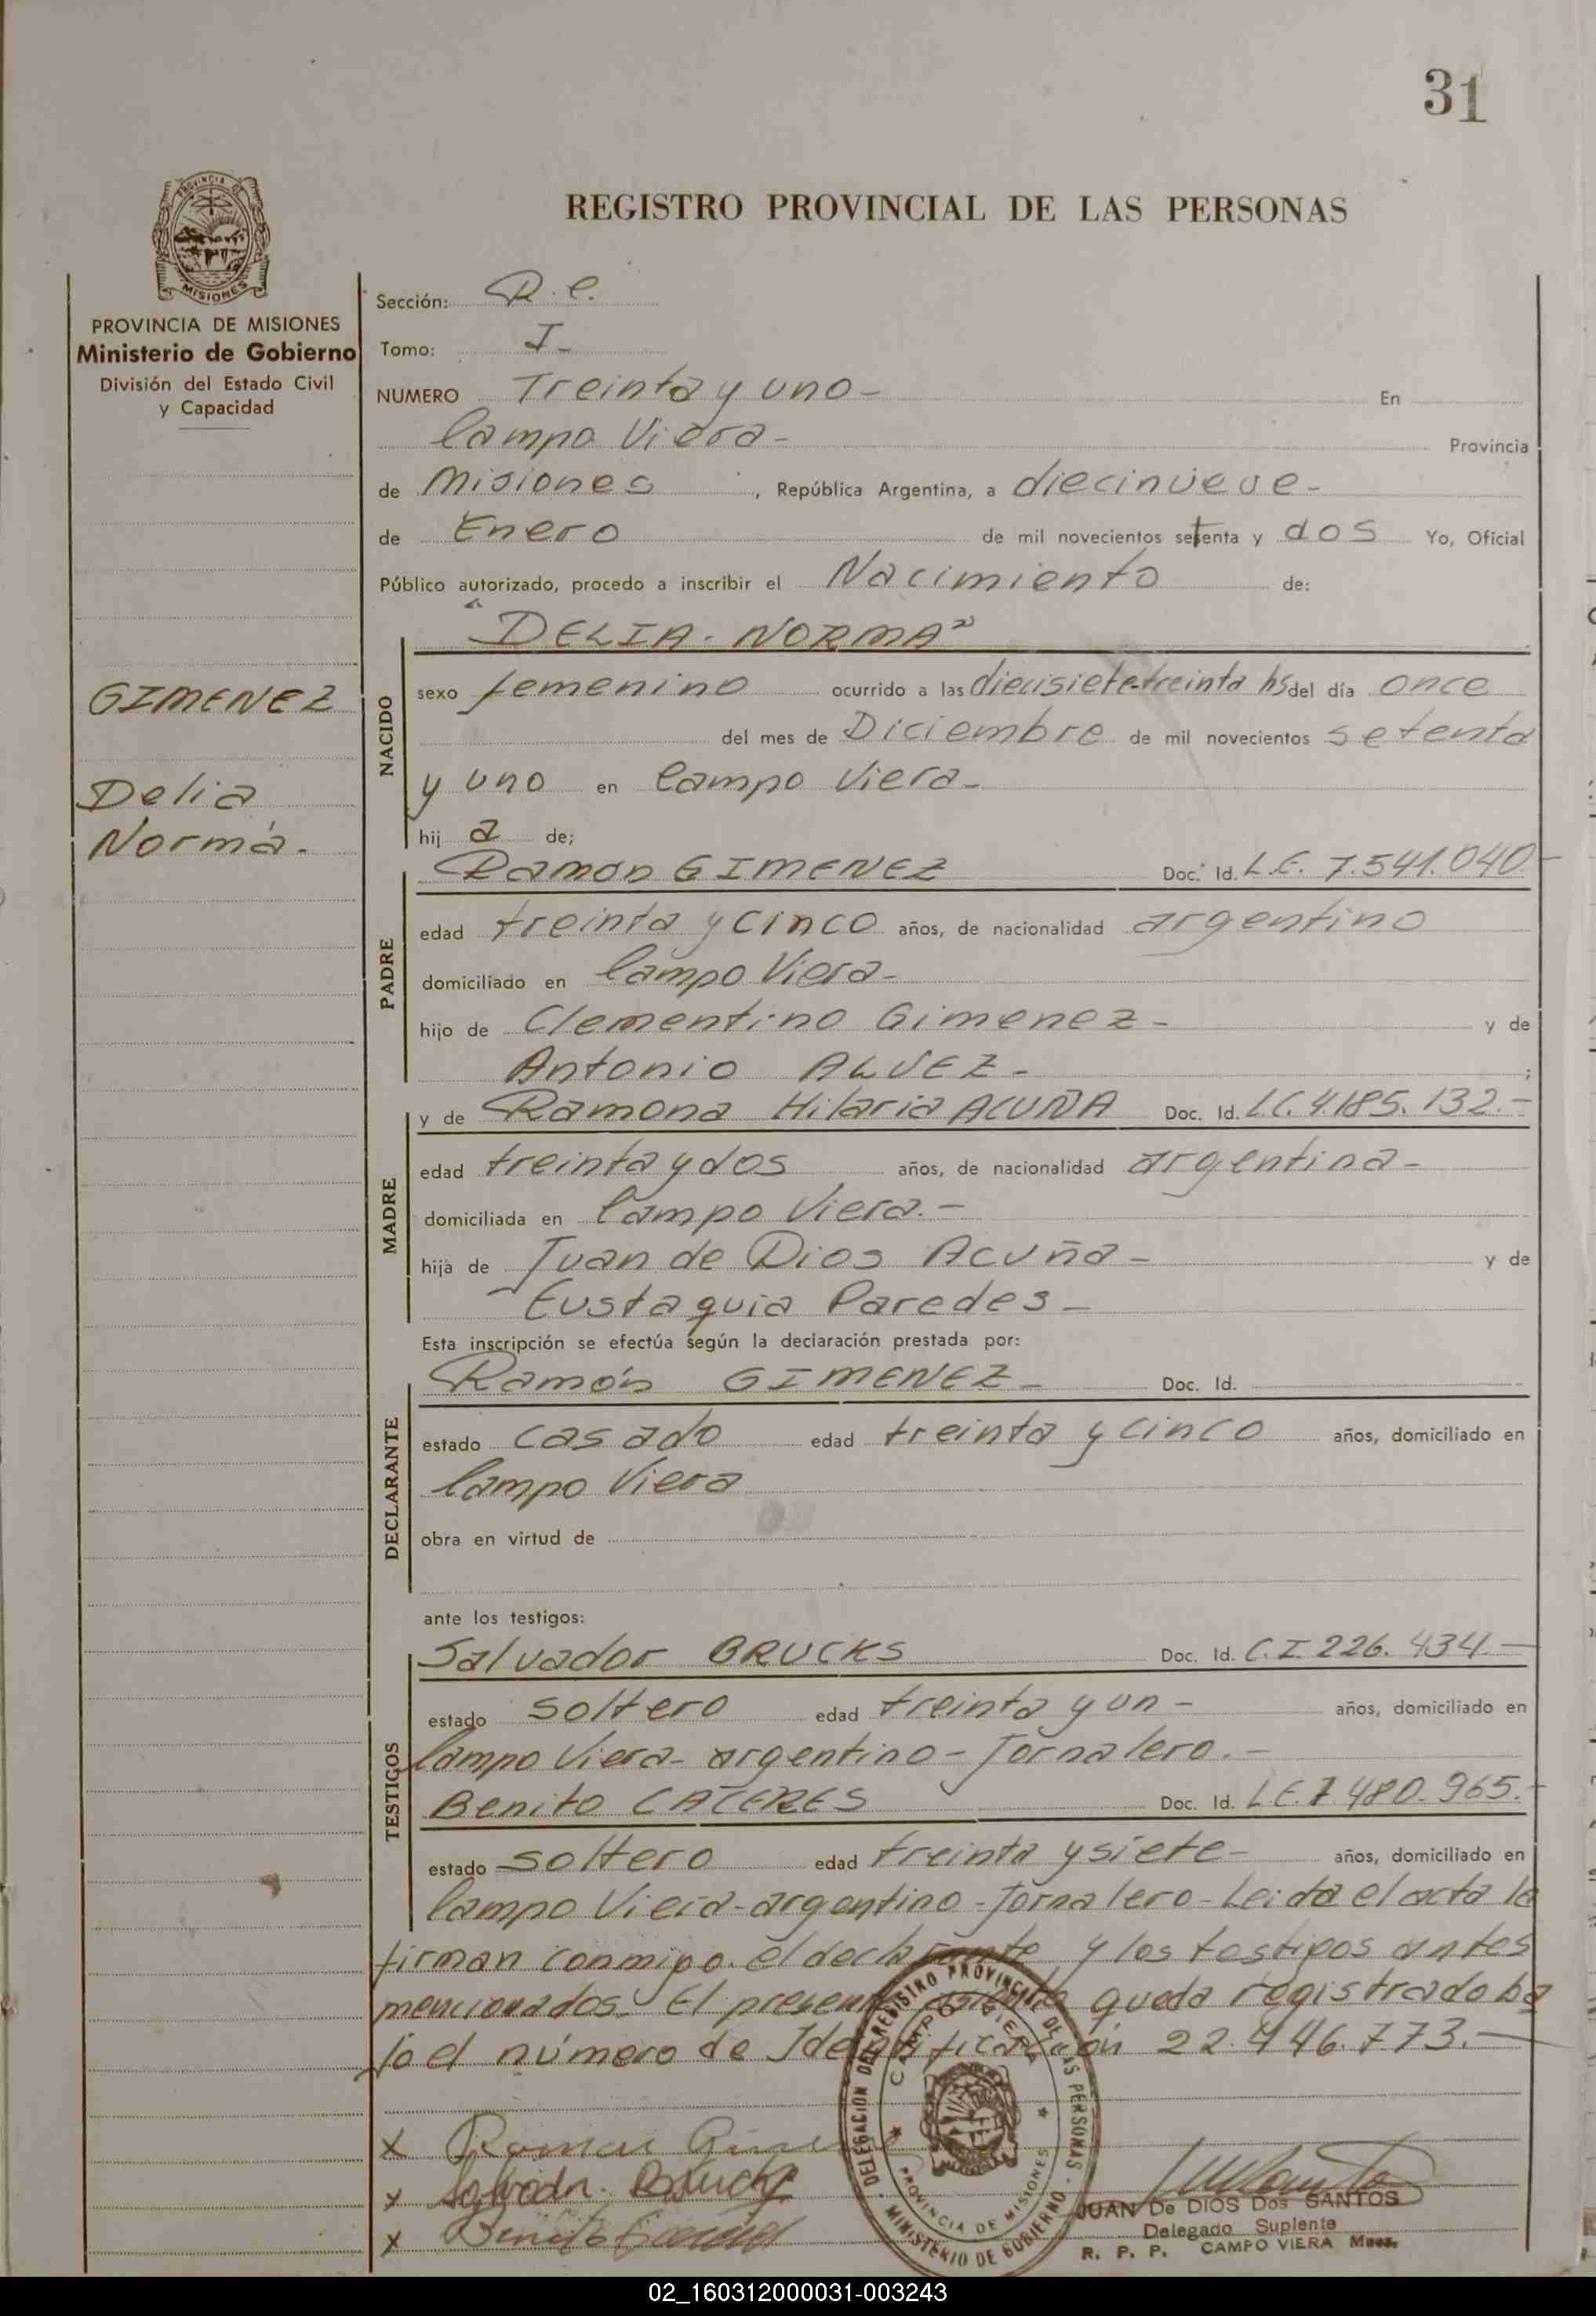 31
REGISTRO PROVINCIAL DE LAS PERSONAS
PROVINCIA DE MISIONES
PROVINCIA DE MISIONES
Ministerio de Gobierno
División del Estado Civil
y Capacidad
GIMENEZ
Delia
Norma.
Sección: R. C.
Tomo: I-
NUMERO Treinta y uno- En
Campo Viera- Provincia
de Misiones, República Argentina, a diecinueve-
de Enero de mil novecientos setenta y dos Yo, Oficial
Público autorizado, procedo a inscribir el Nacimiento de:
"DELIA - NORMA"
NACIDO
sexo femenino ocurrido a las diecisiete-treinta hs del día once
del mes de Diciembre de mil novecientos setenta
y uno en Campo Viera-
hij a de;
Ramon GIMENEZ Doc. Id. L.E. 7.541.040-
PADRE
edad treinta y cinco años, de nacionalidad argentino
domiciliado en Campo Viera-
hijo de Clementino Gimenez- y de
Antonio ALVEZ- ;
y de Ramona Hilaria ACUÑA Doc. Id. LC. 4.185.132.-
MADRE
edad treinta y dos años, de nacionalidad argentina-
domiciliada en Campo Viera.-
hija de Juan de Dios Acuña- y de
Eustaquia Paredes-
Esta inscripción se efectúa según la declaración prestada por:
Ramón GIMENEZ- Doc. Id.
DECLARANTE
estado casado edad treinta y cinco años, domiciliado en
Campo Viera
obra en virtud de
ante los testigos:
Salvador BRUCKS Doc. Id. C.I. 226.434.-
TESTIGOS
estado soltero edad treinta y un- años, domiciliado en
Campo Viera- argentino- Jornalero.-
Benito CACERES Doc. Id. L.E. 7.480.965.-
estado soltero edad treinta y siete- años, domiciliado en
Campo Viera-argentino-Jornalero-Leida el acta la
firman conmigo. el declarante y los testigos antes
mencionados. El presente asiento queda registrado ba
jo el número de Identificación 22.446.773.-
DELEGACION DEL REGISTRO PROVINCIAL DE LAS PERSONAS - MINISTERIO DE GOBIERNO
CAMPO VIERA
PROVINCIA DE MISIONES
x Ramon
x Salvador Brucks
x Benito
JUAN De DIOS Dos SANTOS
Delegado Suplente
R. P. P. CAMPO VIERA Mnes.
02_160312000031-003243